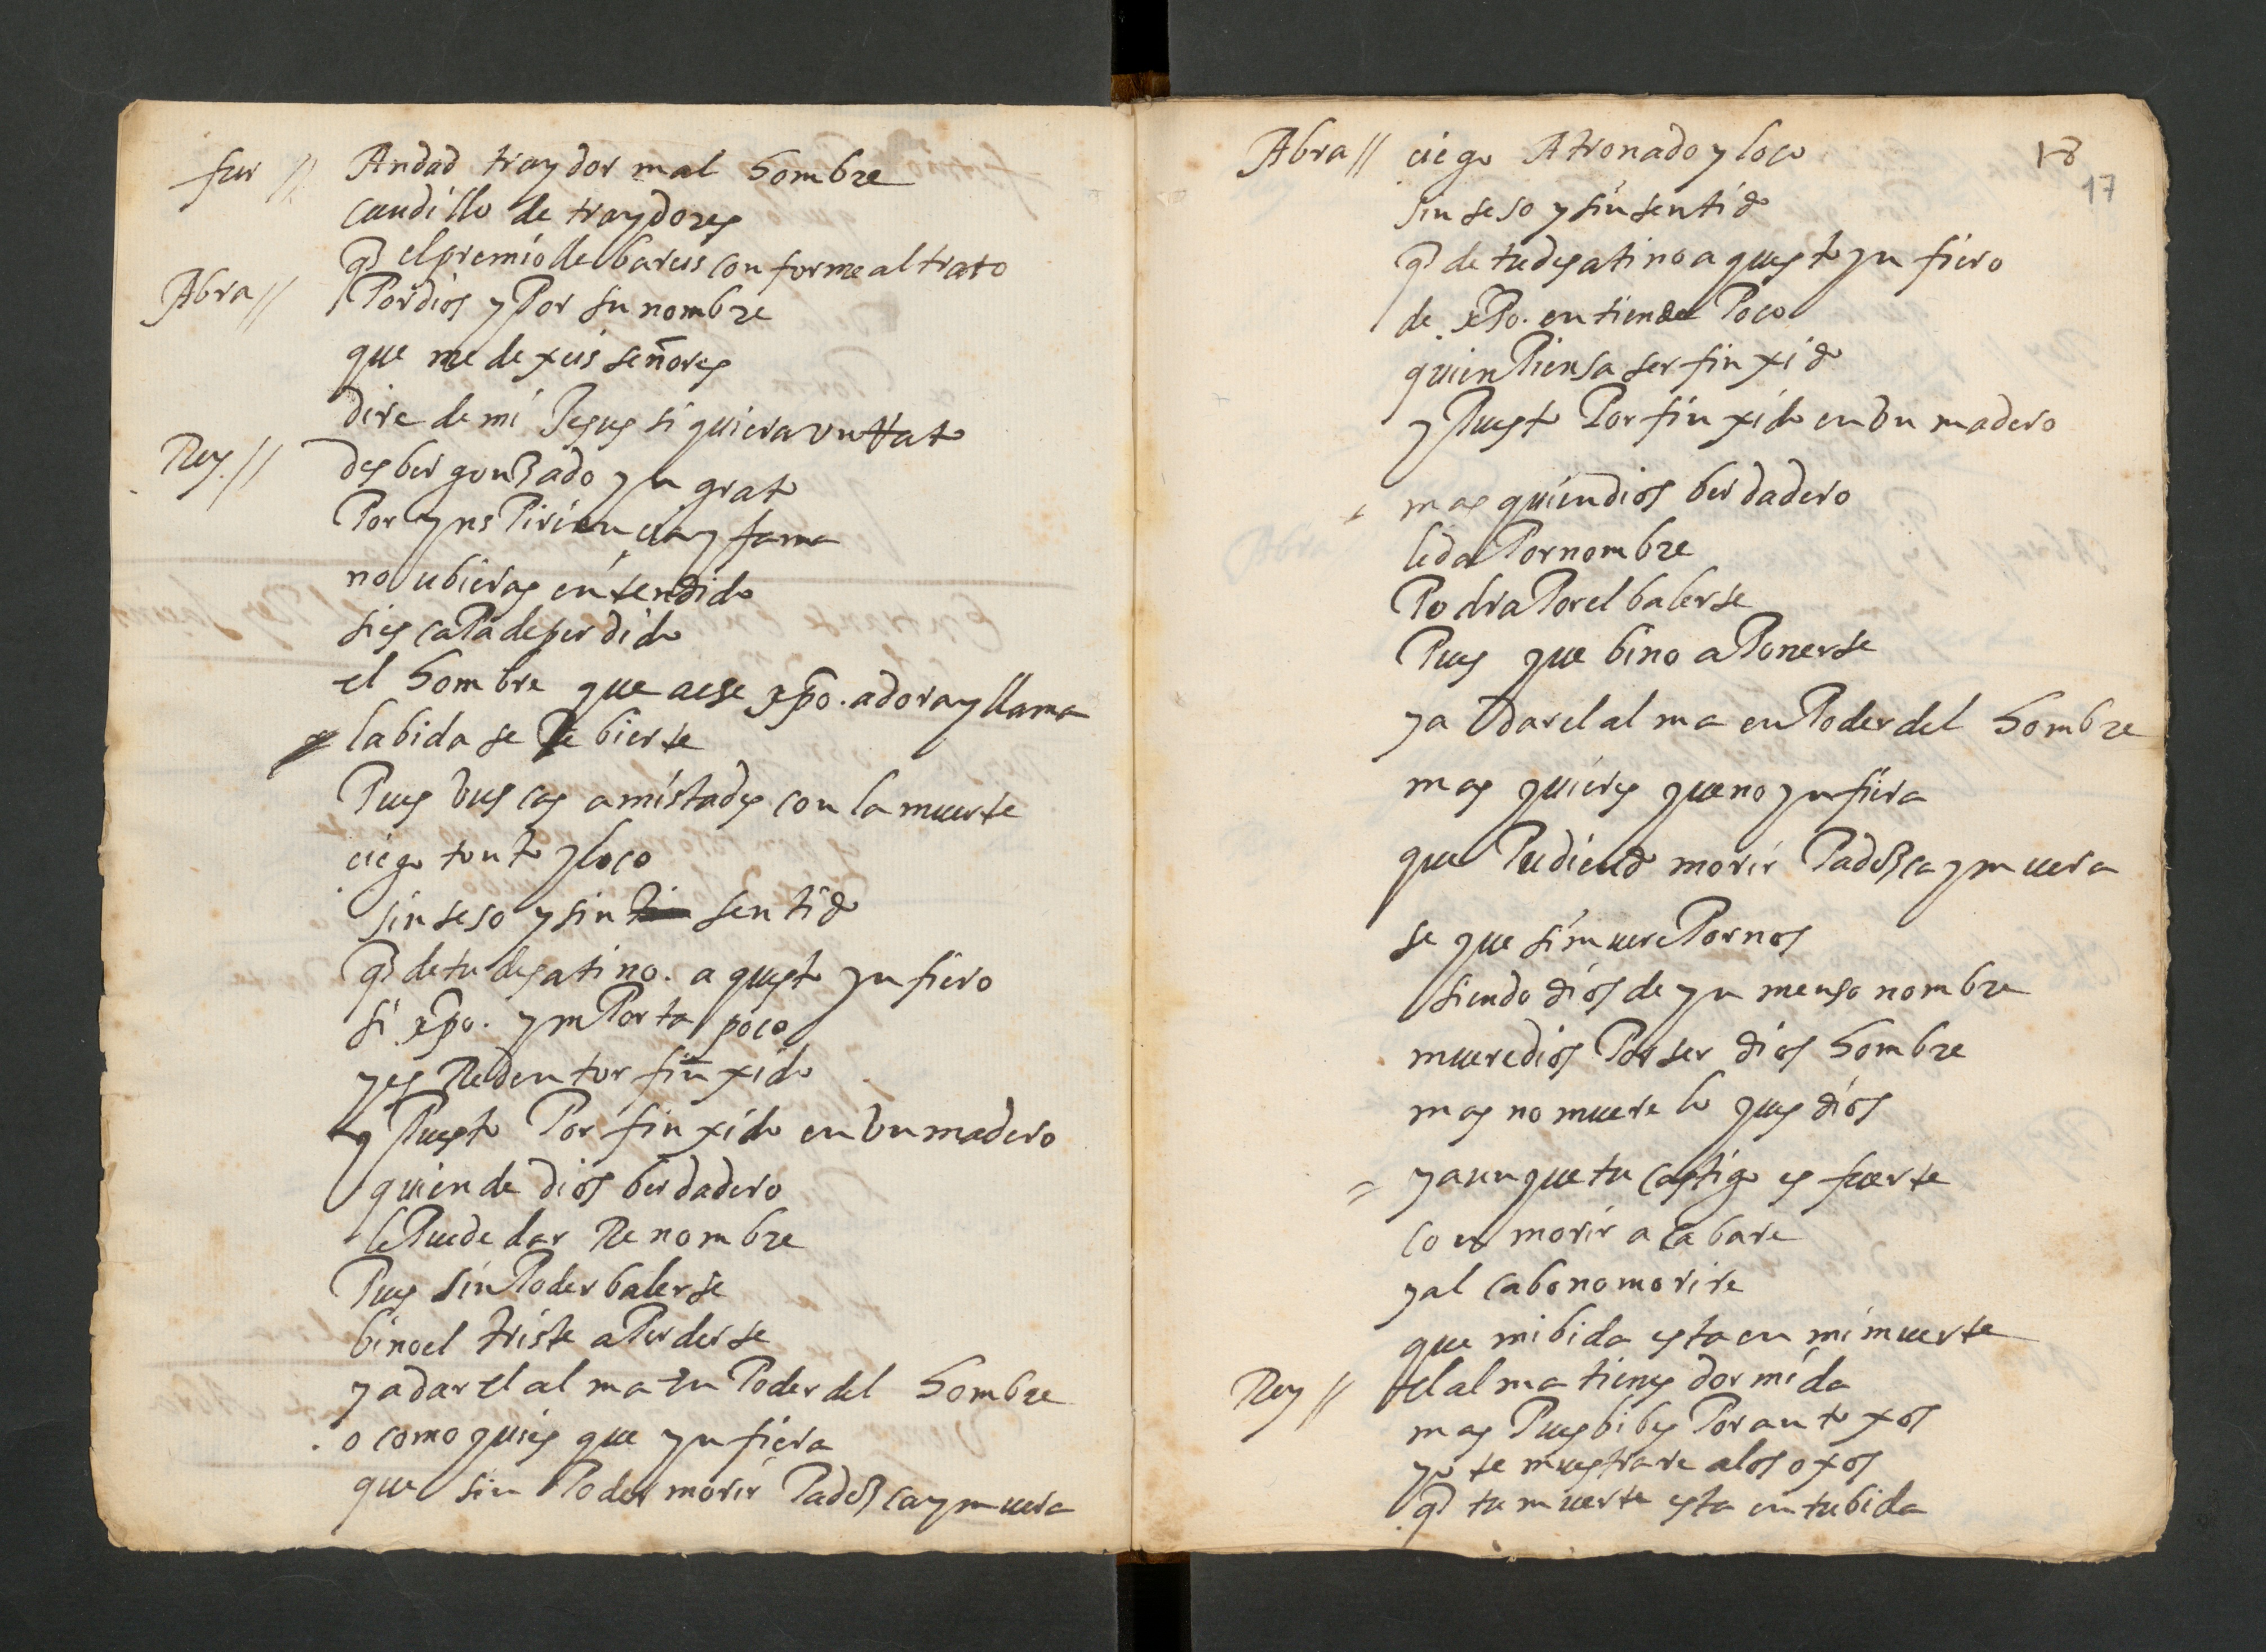 fur // Andad traydor mal hombre
caudillo de traydores
q̃ el premio llebareis conforme al trato
Abra // Por dios y Por su nombre
que me dexeis señores
dire de mi Jesus si quiera un Rato
Rey // desbergonzado yngrato
Por yns
no ubieras entendido
si es ca Pa de perdido
el hombre que a ese xp̃o. adora y llama
la bida se Te bierte
Pues buscas amistades con la muerte
ciego tonto y loco
sin seso y sin sentido
q̃ de tu desatino. a questo ynfiero
si xp̃o. ymPorta poco
y es Redentor finxido
y Puesto Por finxido en bn madero
quien de dios berdadero
le Puede dar Renombre
Pues sin Poder balerse
bino el triste a Perderse
y a dar el alma en Poder del hombre
o como quies que ynfiera
que sin Poder morir Padezca y muera
18
17
Abra // ciego Atronado y loco
sin seso y sin sentido
q̃ de tu desatino a questo ynfiero
de xp̃o. entiende Poco
quien Piensa ser finxido
y Puesto Por finxido en bn madero
mas quien dios berdadero
le da Por nombre
Podra Por el balerse
Pues que bino a Ponerse
y a dar el alma en Poder del hombre
mas quieres que no ynfiera
que Pudiendo morir Padezca y muera
se que si muere Por nos
siendo dios de ynmenso nombre
muere dios Por ser dios hombre
mas no muere lo ques dios
y aunque tu castigo es fuerte
con morir acabare
y al cabo no morire
que mi bida esta en mi muerte
Rey // el alma tienes dormida
mas Pues bibes Por antoxos
yo te mostrare a los oxos
q̃ tu muerte esta en tu bida